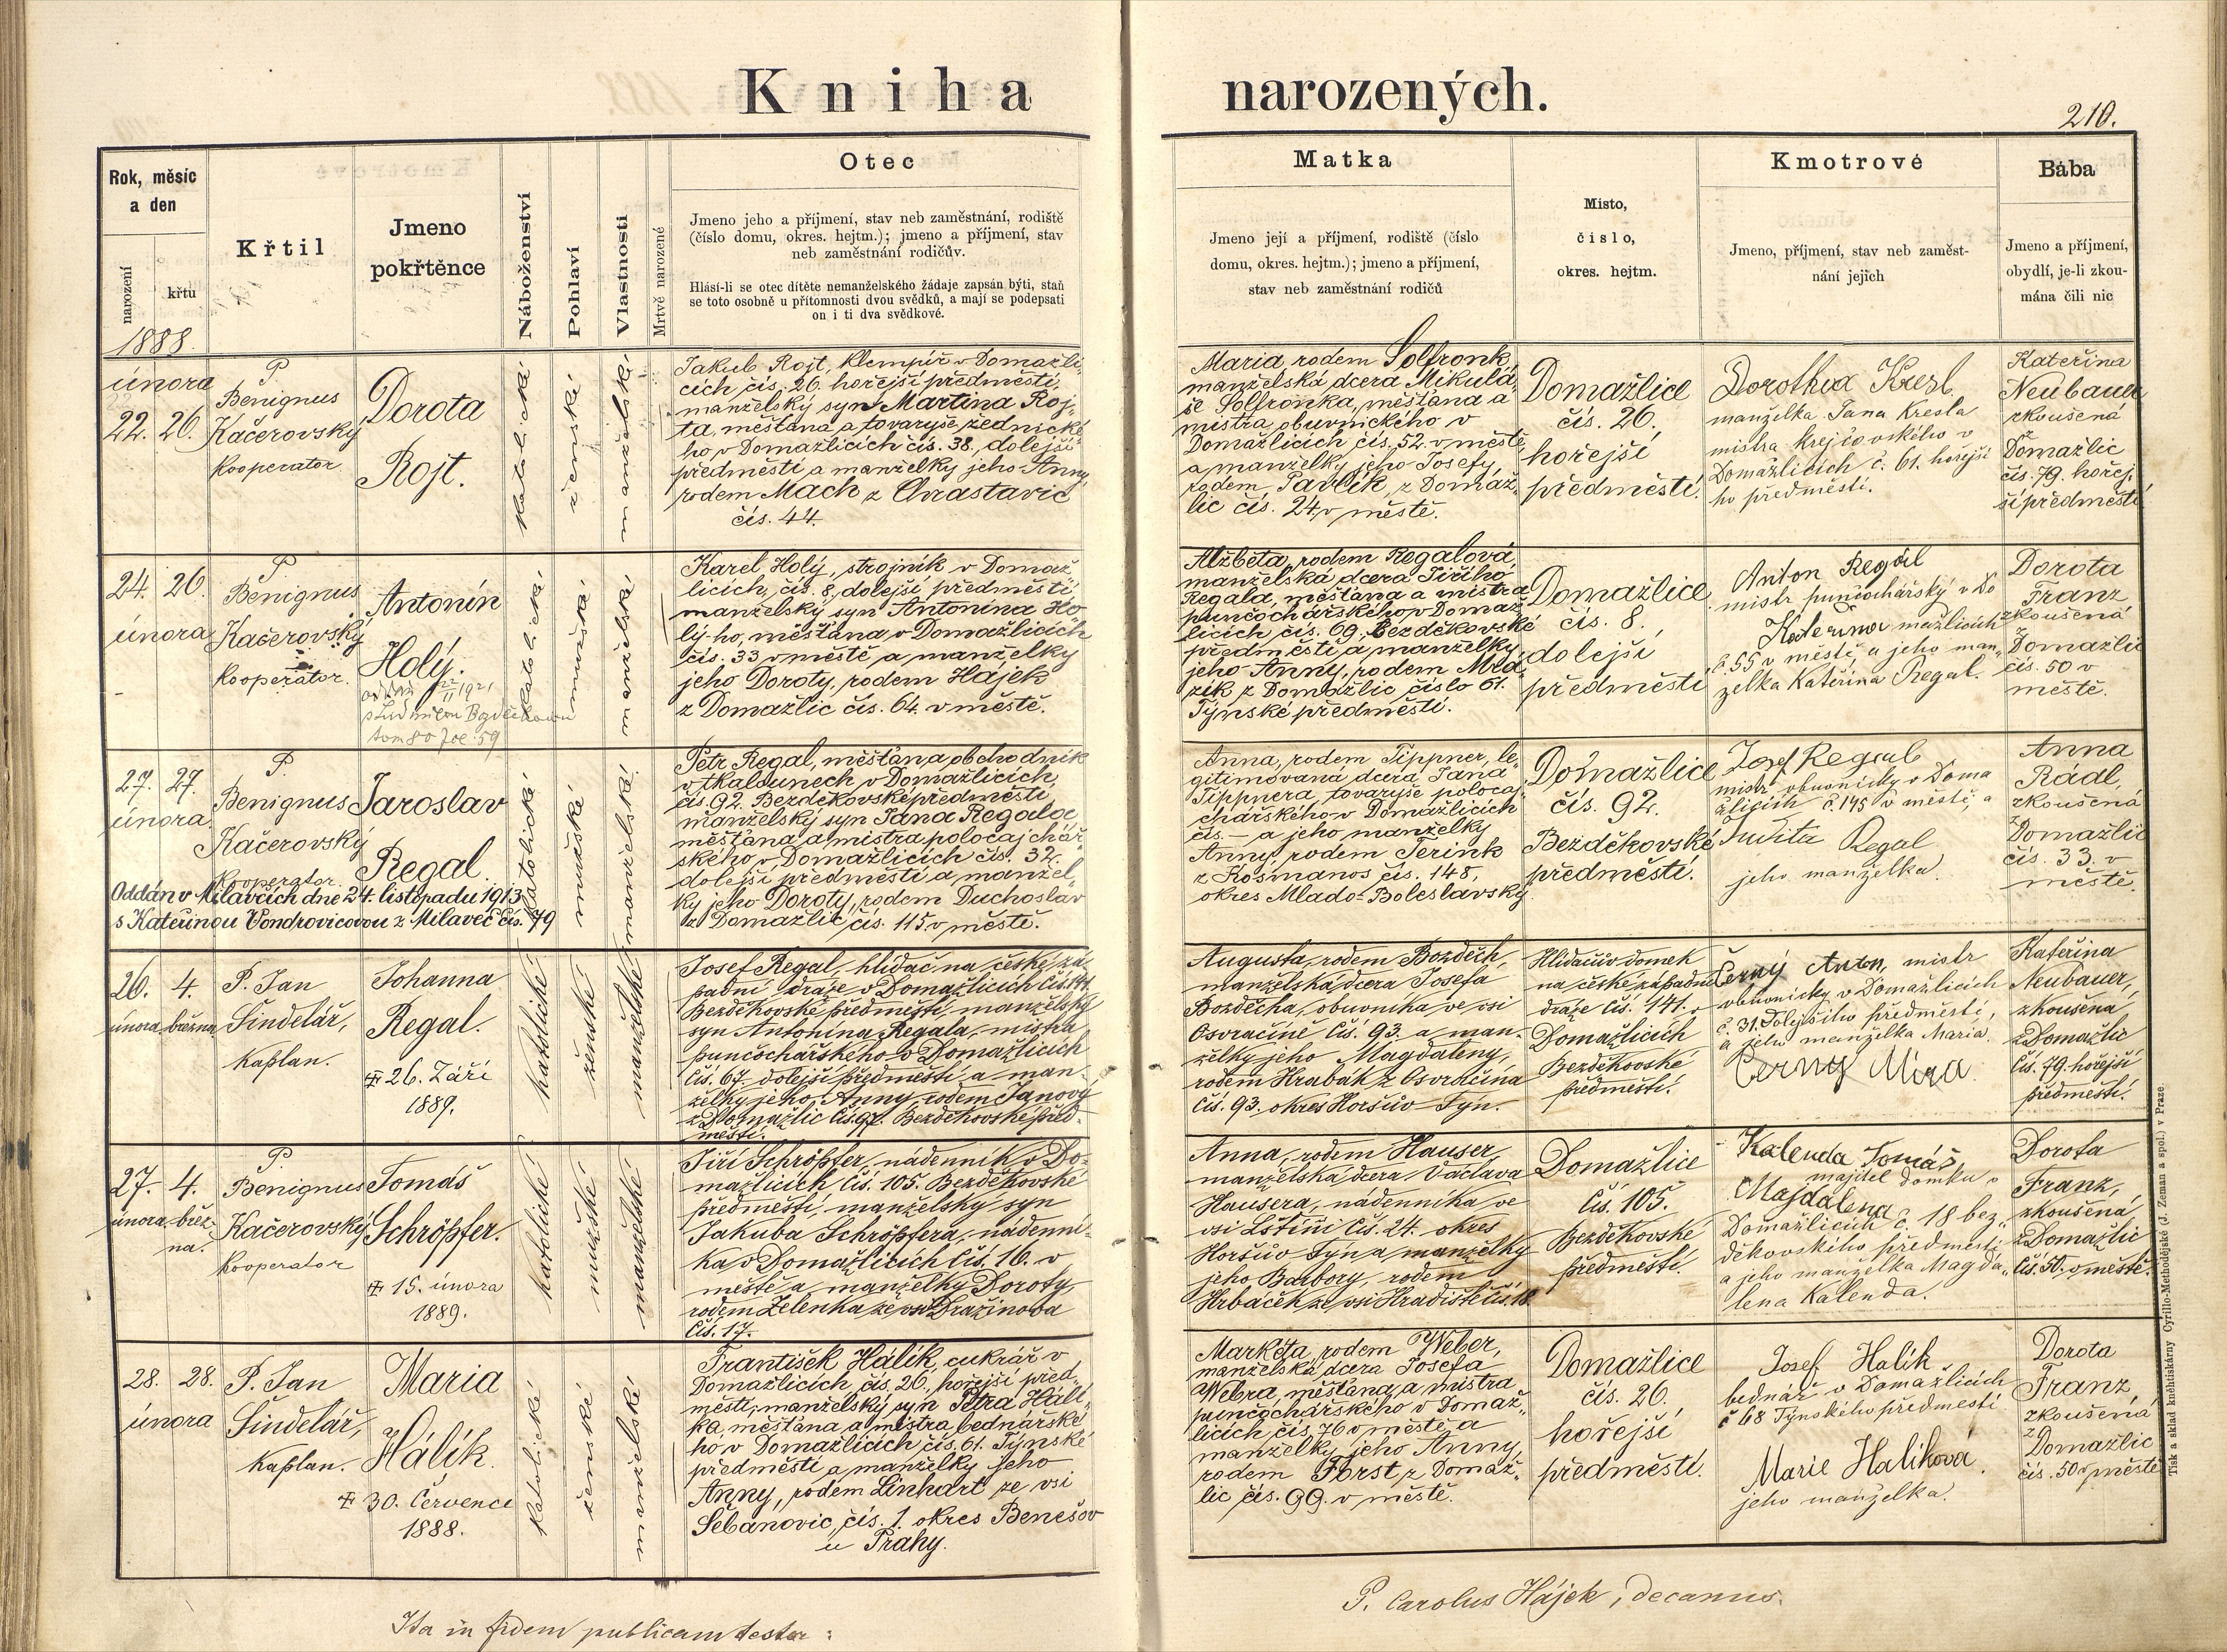 Kniha narozených.
210.
Rok, měsíc
a den
narození
křtu
1888.
Křtil
Jmeno
pokřtěnce
Náboženství
Pohlaví
Vlastnosti
Mrtvě narozené
Otec
Jmeno jeho a příjmení, stav neb zaměstnání, rodiště
(číslo domu, okres. hejtm.); jmeno a příjmení, stav
neb zaměstnání rodičův.
Hlásí-li se otec dítěte nemanželského žádaje zapsán býti, staň
se toto osobně u přítomnosti dvou svědků, a mají se podepsati
on i ti dva svědkové.
Matka
Jmeno její a příjmení, rodiště (číslo
domu, okres. hejtm.); jmeno a příjmení,
stav neb zaměstnání rodičů
Místo,
číslo,
okres. hejtm.
Kmotrové
Jmeno, příjmení, stav neb zaměst-
nání jejich
Bába
Jmeno a příjmení,
obydlí, je-li zkou-
mána čili nic
února
22. 26.
P.
Benignus
Kačerovský
kooperator
Dorota
Rojt.
katolické
ženské
manželské
Jakub Rojt, klempíř v Domažli-
cích čís. 26. hořejší předměstí,
manželský syn Martina Roj-
ta, měšťana a tovaryše zednické-
ho v Domažlicích čís. 38., dolejší
předměstí a manželky jeho Anny
rodem Mach z Chrastavic
čís. 44.
Maria, rodem Solfronk,
manželská dcera Mikulá-
še Solfronka, měšťana a
mistra obuvnického v
Domažlicích čís. 52. v městě,
a manželky jeho Josefy,
rodem Pavlík, z Domaž-
lic čís. 24. v městě.
Domažlice
čís. 26.
hořejší
předměstí.
Dorothea Kresl
manželka Jana Kresla
mistra krejčovského v
Domažlicích č. 61. hořejší
ho předměstí.
Kateřina
Neubauer
zkoušená
z
Domažlic
čís. 79. hořej-
ší předměstí
24. 26.
února
P.
Benignus
Kačerovský
kooperator.
Antonín
Holý.
katolické
mužské
manželské
Karel Holý, strojník v Domaž-
licích, čís. 8, dolejší předměstí,
manželský syn Antonína Ho-
lý-ho, měšťana v Domažlicích
čís. 33 v městě a manželky
jeho Doroty, rodem Hájek
z Domažlic čís. 64. v městě.
Alžběta, rodem Regalová,
manželská dcera Jiřího
Regala, měšťana a mistra
punčochářského v Domaž-
licích čís. 69. Bezděkovské
předměstí a manželky
jeho Anny, rodem Mla-
zík z Domažlic číslo 61.
Týnské předměstí.
Domažlice
čís. 8.
dolejší
předměstí
Anton Regál
mistr punčochářský v Do
Kateřina mažlicích
č. 55 v městě, a jeho man-
želka Kateřina Regal.
Dorota
Franz
zkoušená
z
Domažlic
čís. 50 v
městě.
27. 27.
února
P.
Benignus
Kačerovský
Kooperator
Jaroslav
Regal.
Oddán v Milavčích dne 24. listopadu 1913
s Kateřinou Vondrovicovou z Milaveč čís. 79
katolické
mužské
manželské
Petr Regal, měšťan a obchodník
v tkalounech v Domažlicích,
čís. 92. Bezděkovské předměstí,
manželský syn Jana Regala,
měšťana a mistra polocajchář-
ského v Domažlicích čís. 32.
dolejší předměstí a manžel-
ky jeho Doroty, rodem Duchoslav
z Domažlic čís. 115 v městě.
Anna, rodem Tippner, le-
gitimovaná dcera Jana
Tippnera, tovaryše polocaj-
chářského v Domažlicích
čís. — a jeho manželky
Anny, rodem Terink
z Kosmanos čís. 148,
okres Mlado-Boleslavský.
Domažlice
čís. 92.
Bezděkovské
předměstí.
Josef Regal
mistr obuvnický v Doma
žlicích č. 145 v městě, a
Judita Regal
jeho manželka.
Anna
Rádl,
zkoušená
z
Domažlic
čís. 33. v
městě.
26. 4.
února března
P. Jan
Šindelář,
kaplan.
Johanna
Regal.
26. Září
1889.
katolické
ženské
manželské
Josef Regal, hlídač na české zá-
padní dráze v Domažlicích čís. 141.
Bezděkovské předměstí, manželský
syn Antonína Regala, mistra
punčochářského v Domažlicích
čís. 67. dolejší předměstí a man-
želky jeho Anny, rodem Janový
z Domažlic čís. 97. Bezděkovské před-
městí.
Augusta, rodem Bozděch,
manželská dcera Josefa
Bozděcha, obuvníka ve vsi
Osvračíně čís. 93. a man-
želky jeho Magdaleny,
rodem Hrabák z Osvračína
čís. 93. okres Horšův-Týn.
Hlídačův domek
na české západní
dráze čís. 141. v
Domažlicích
Bezděkovské
předměstí.
Černý Anton, mistr
obuvnický v Domažlicích
č. 31. Dolejšího předměstí,
a jeho manželka Maria.
Černy Mira
Kateřina
Neubauer,
zkoušená,
z Domažlic
čís. 79. hořejší
předměstí.
27. 4.
února břez-
na.
P.
Benignus
Kačerovský
kooperator
Tomáš
Schröpfer.
15. února
1889.
katolické
mužské
manželské
Jiří Schröpfer, nádenník v Do-
mažlicích čís. 105. Bezděkovské
předměstí, manželský syn
Jakuba Schröpfera, nádenní-
ka v Domažlicích čís. 16. v
městě a manželky Doroty,
rodem Zelenka ze vsi Dražinova
čís. 17.
Anna, rodem Hauser,
manželská dcera Václava
Hausera, nádenníka ve
vsi Lštíni čís. 24. okres
Horšův-Týn a manželky
jeho Barbory, rodem
Hrbáček ze vsi Hradiště čís. 18.
Domažlice
čís. 105.
Bezděkovské
předměstí.
Kalenda Tomáš,
majitel domku v
Majdalena
Domažlicích č. 18 bez-
děkovského předměstí
a jeho manželka Magda-
lena Kalenda.
Dorota
Franz,
zkoušená,
z Domažlic
čís. 50. v městě.
28. 28.
února
P. Jan
Šindelář,
kaplan.
Maria
Hálík.
30. Července
1888.
katolické
ženské
manželské
František Hálík, cukrář v
Domažlicích, čís. 26., hořejší před-
městí, manželský syn Petra Hálí-
ka, měšťana a mistra bednářské-
ho v Domažlicích čís. 61. Týnské
předměstí a manželky jeho
Anny, rodem Linhart ze vsi
Šebanovic, čís. 1. okres Benešov
u Prahy.
Markéta, rodem Weber,
manželská dcera Josefa
Webra, měšťana, a mistra
punčochářského v Domaž-
licích čís. 76 v městě a
manželky jeho Anny,
rodem Forst z Domaž-
lic čís. 99. v městě.
Domažlice
čís. 26,
hořejší
předměstí.
Josef Halík
bednář v Domažlicích
č 68 Týnského předměstí
Marie Halíková
jeho manželka.
Dorota
Franz,
zkoušená
z
Domažlic
čís. 50 v městě
Tisk a sklad knihtiskárny Cyrillo-Methodějské (J. Zeman a spol.) v Praze
Ita in fidem publicam testor:
P. Carolus Hájek, decanus.